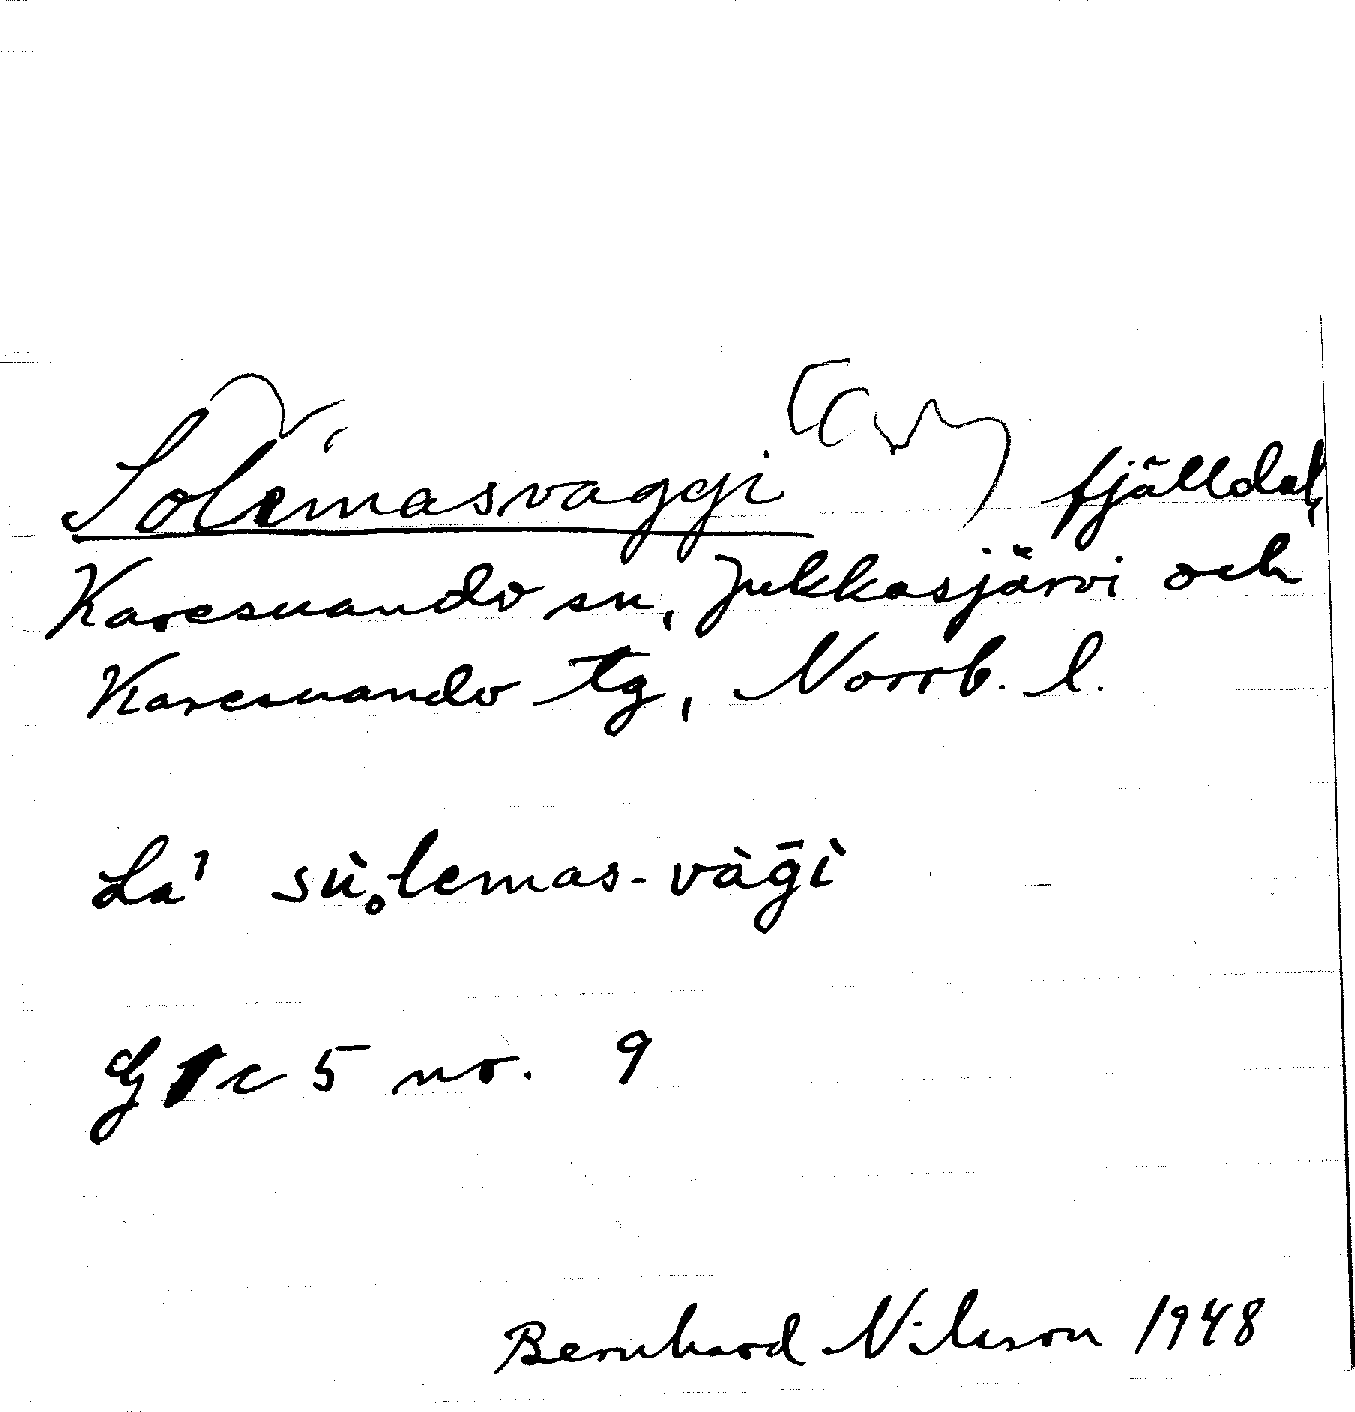 Solemasvaggi fjälldal,
Karesuando sn, Jukkasjärvi och
Karesuando tg, Norrb. l.
La' sùo̥lemas-vàḡì
G 1 c 5 no. 9
Bernhard Nilsson 1948